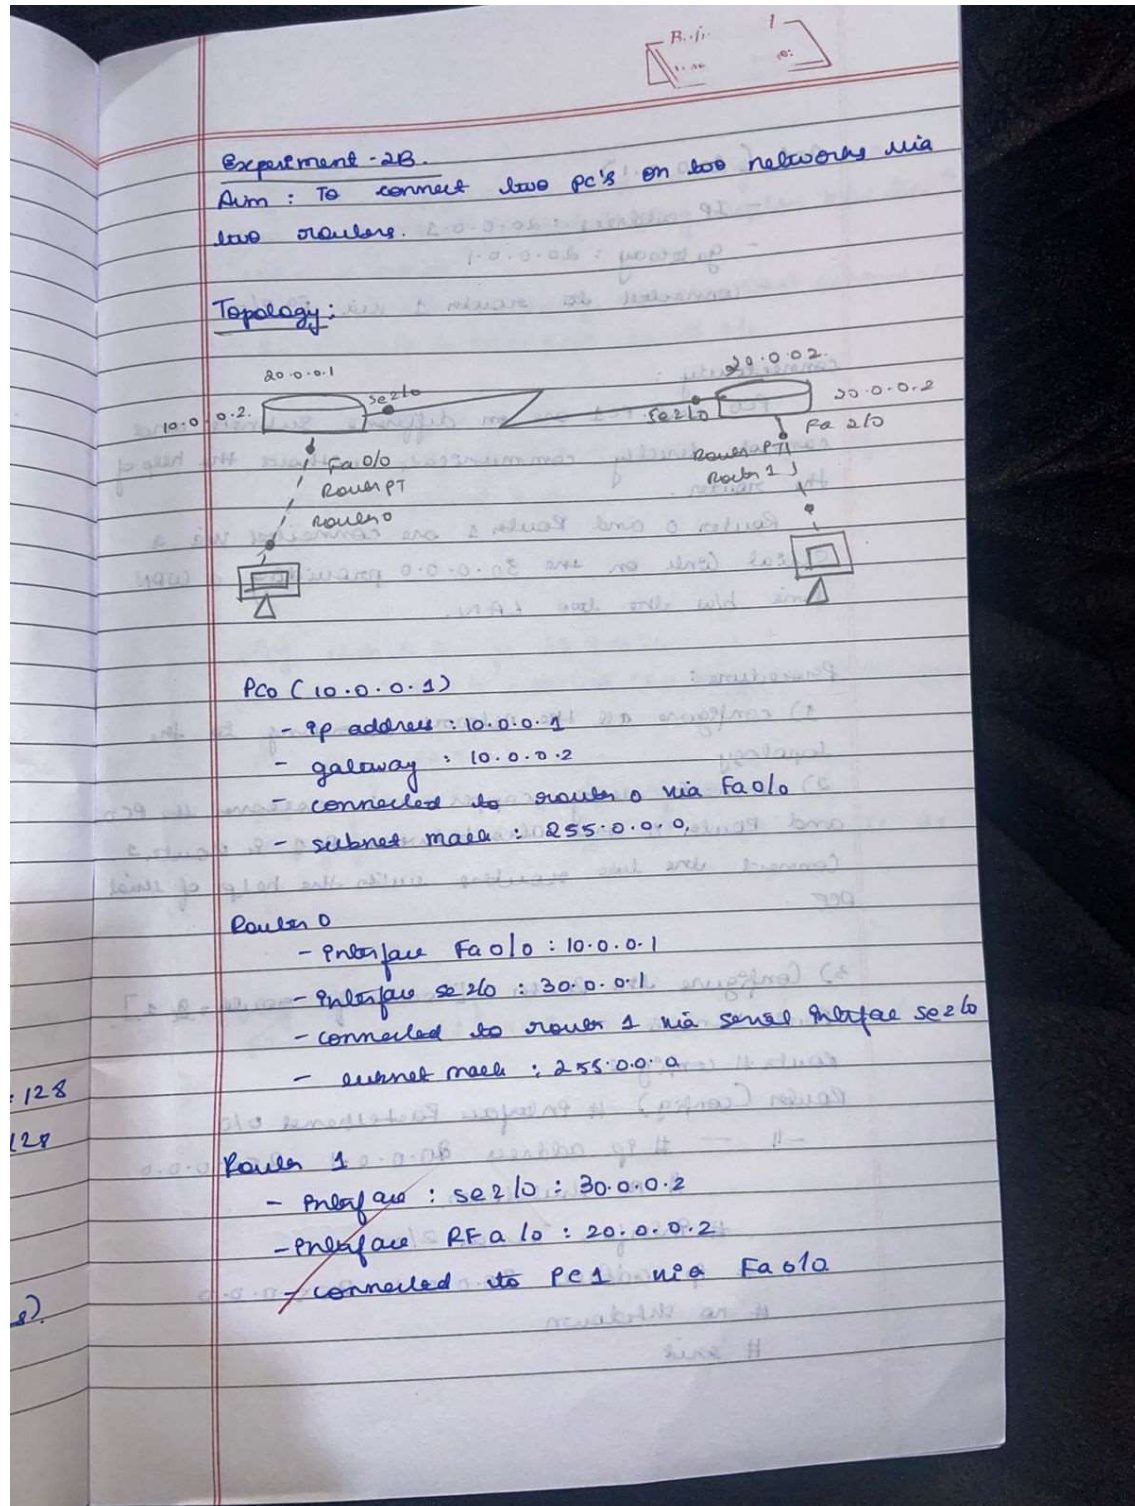 Experiment - 2B.
Aim : To connect two pc's on two networks via
two routers.
Topology :
20.0.0.1
20.0.02.
10.0.0.2.
se2/0
se2/0
20.0.0.2
Fa 0/0
Fa 2/0
Router PT
Router PT
Router 0
Router 1
PC0 (10.0.0.1)
- ip address : 10.0.0.1
- gateway : 10.0.0.2
- connected to router 0 via Fa0/0
- subnet mask : 255.0.0.0.
Router 0
- Interface Fa0/0 : 10.0.0.1
- Interface se2/0 : 30.0.0.1
- connected to router 1 via serial Interface se2/0
- subnet mask : 255.0.0.0
: 128
128
Router 1
- Interface : se2/0 : 30.0.0.2
- Interface RFa/0 : 20.0.0.2
- connected to PC1 via Fa0/0
s).